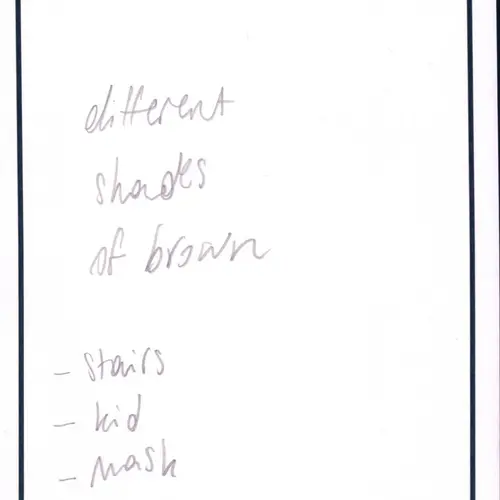 different
shades
of brown
- stairs
- kid
- mask